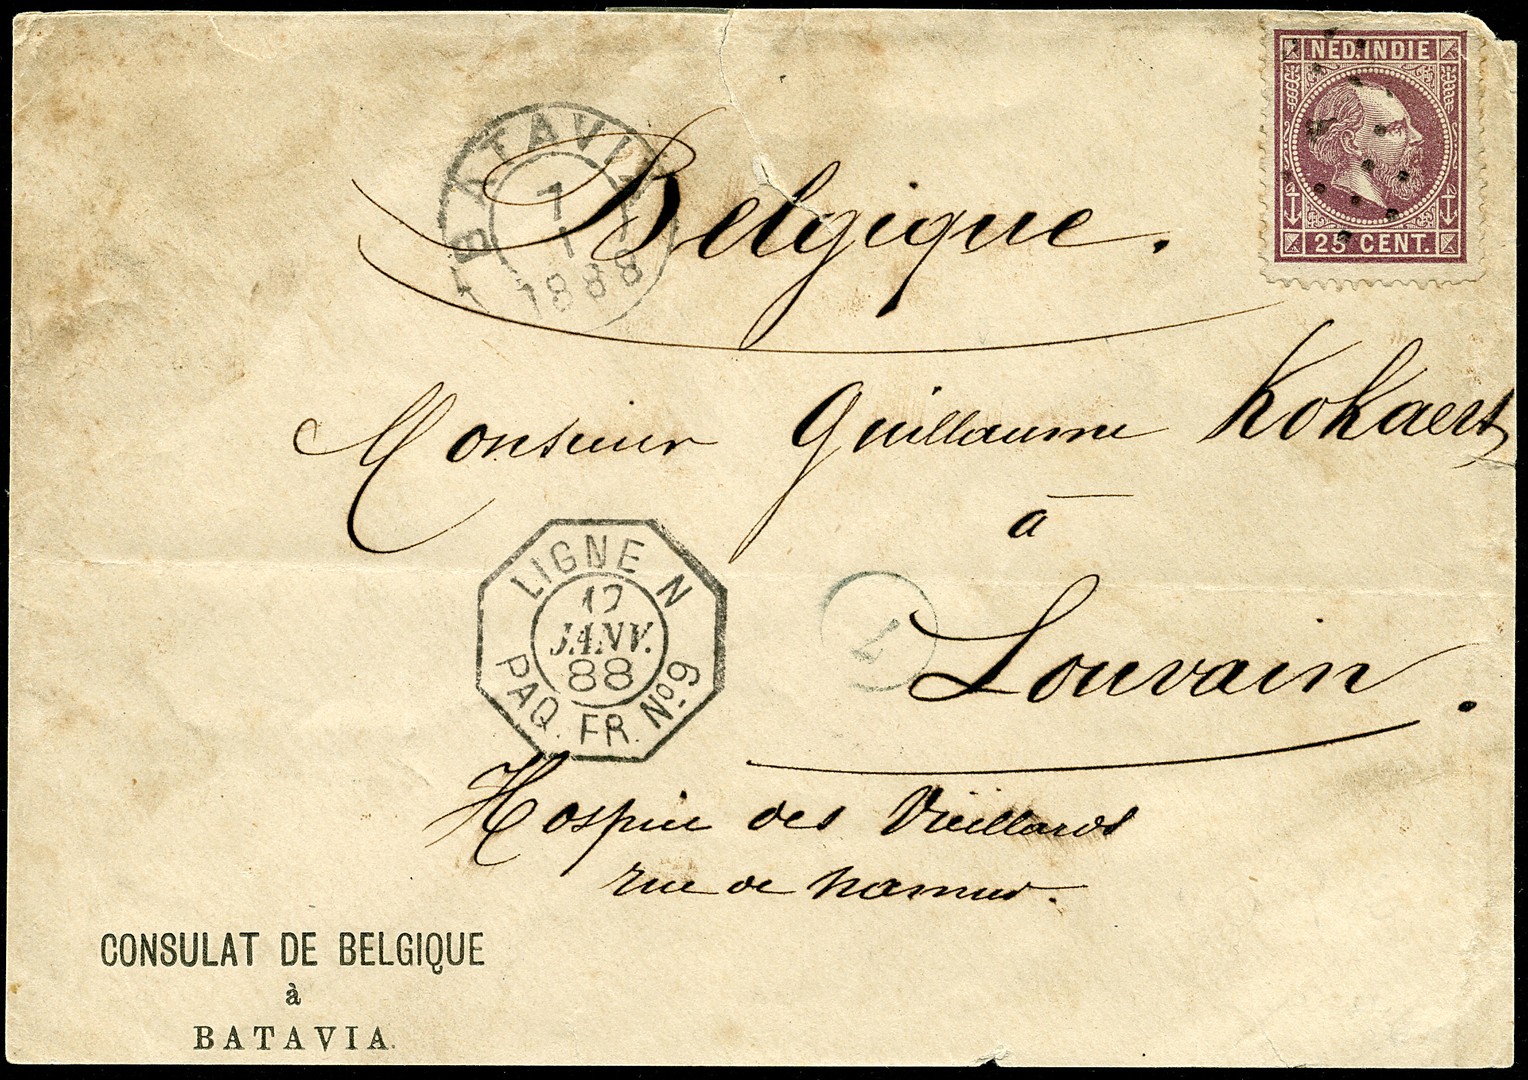 NED. INDIE
25 CENT.
BATAVIA
7
1
1888
Belgique.
Monsieur Guillaume Kokaert
à
Louvain.
LIGNE N
12
JANV.
88
PAQ. FR. Nº 9
Hospice des Vieillards
rue de Namur.
CONSULAT DE BELGIQUE
à
BATAVIA